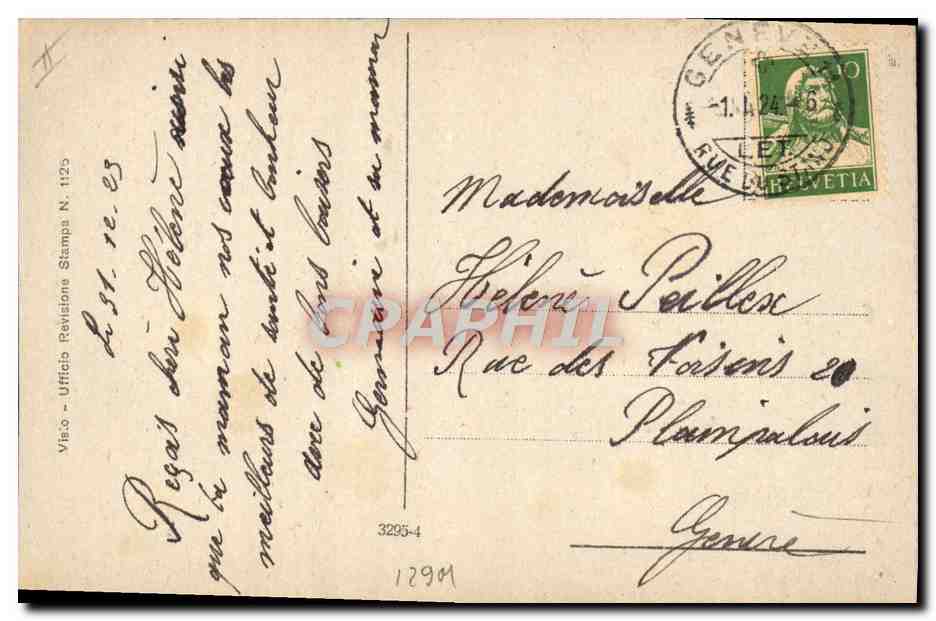 II
Visto - Ufficio Revisione Stampa N. 1125
Le 31.12.23
Reçois chéri Hélène
que ta maman nos voeux les
meilleurs de santé et bonheur
avec de bons baisers
Germaine et sa maman
3295-4
12901
GENEVE
1. 24 - 6
LET
RUE DU
10
HELVETIA
Mademoiselle
Hélène Peillex
Rue des Voisins 20
Plainpalais
Genève
CPAPHIL